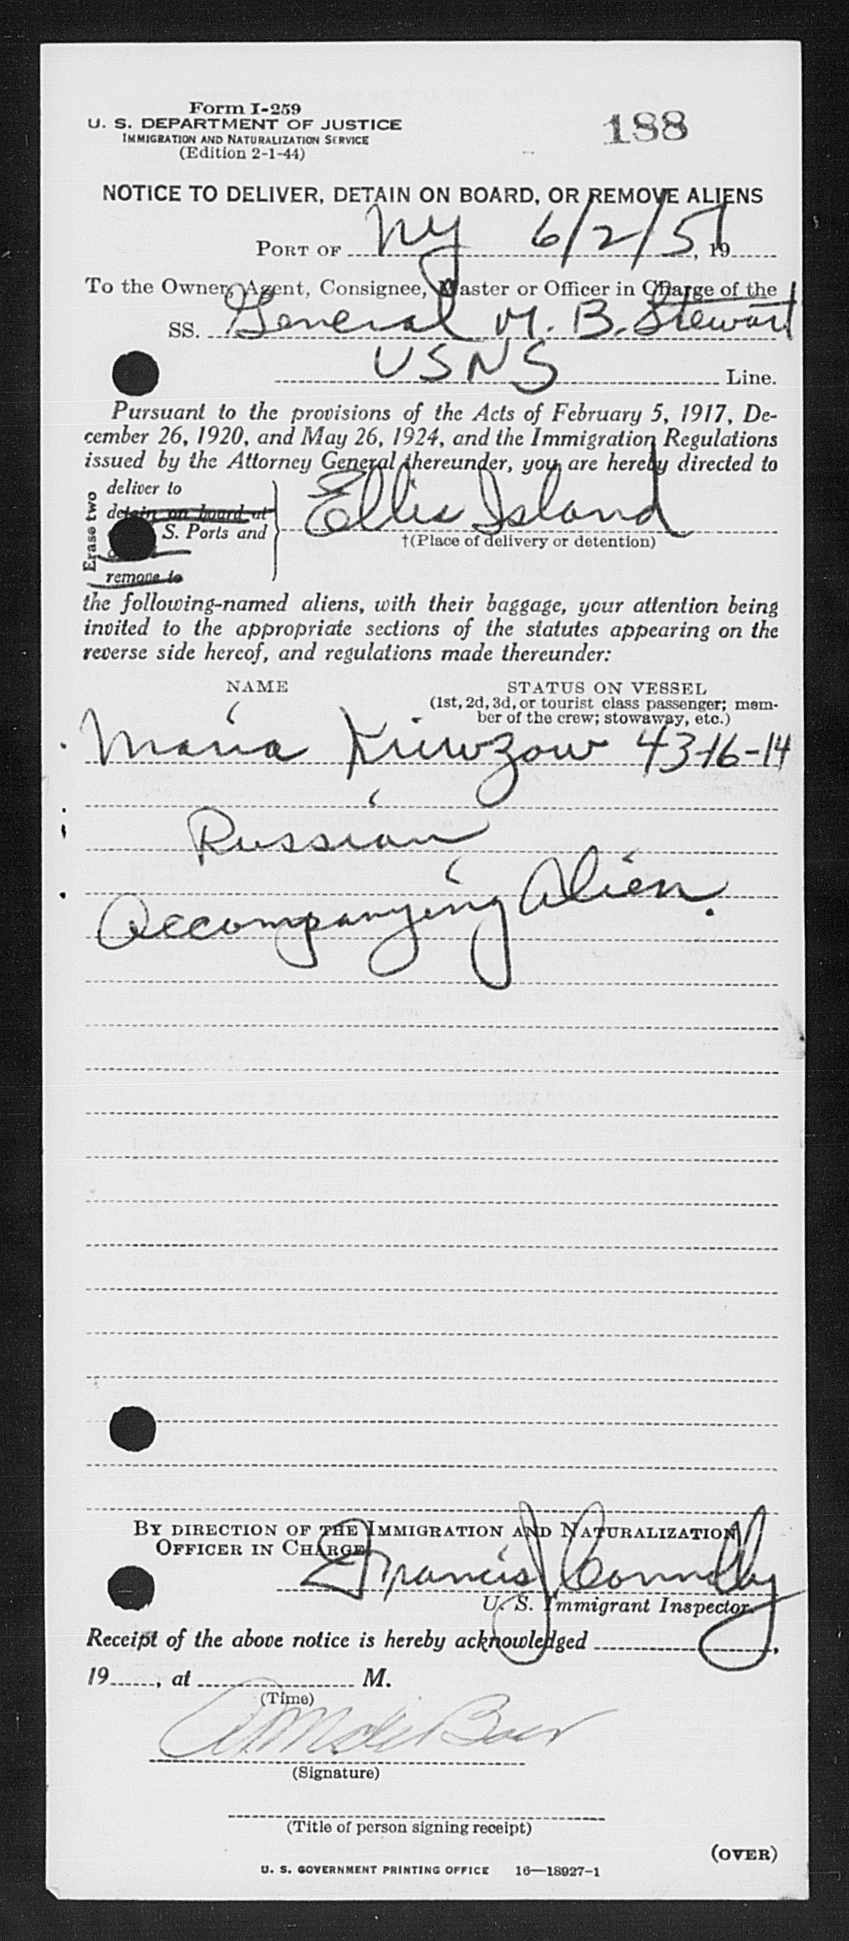 Form I-259
U. S. DEPARTMENT OF JUSTICE
IMMIGRATION AND NATURALIZATION SERVICE
(Edition 2-1-44)
188
NOTICE TO DELIVER, DETAIN ON BOARD, OR REMOVE ALIENS
PORT OF NY 6/2/51, 19
To the Owner, Agent, Consignee, Master or Officer in Charge of the
SS. General M. B. Stewart
USNS Line.
Pursuant to the provisions of the Acts of February 5, 1917, De-
cember 26, 1920, and May 26, 1924, and the Immigration Regulations
issued by the Attorney General thereunder, you are hereby directed to
Erase two
deliver to
detain on board at
S. Ports and
remove to
Ellis Island
†(Place of delivery or detention)
the following-named aliens, with their baggage, your attention being
invited to the appropriate sections of the statutes appearing on the
reverse side hereof, and regulations made thereunder:
NAME
STATUS ON VESSEL
(1st, 2d, 3d, or tourist class passenger; mem-
ber of the crew; stowaway, etc.)
Maria Kriwzow 43-16-14
Russian
Accompanying Alien.
BY DIRECTION OF THE IMMIGRATION AND NATURALIZATION
OFFICER IN CHARGE
Francis J Connolly
U. S. Immigrant Inspector.
Receipt of the above notice is hereby acknowledged ,
19 , at M.
(Time)
(Signature)
(Title of person signing receipt)
(OVER)
U. S. GOVERNMENT PRINTING OFFICE 16—18927-1